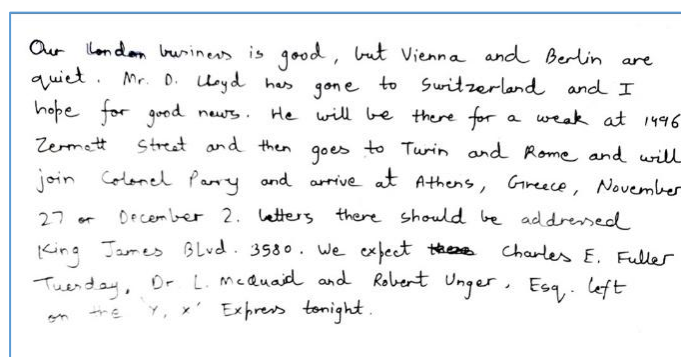 Our London business is good, but Vienna and Berlin are
quiet. Mr. D. Lloyd has gone to Switzerland and I
hope for good news. He will be there for a weak at 1496
Zermott Street and then goes to Turin and Rome and will
join Colonel Parry and arrive at Athens, Greece, November
27 or December 2. Letters there should be addressed
King James BLvd. 3580. We expect Charles E. Fuller
Tuesday, Dr L. McQuaid and Robert Unger, Esq. left
on the 'Y, X' Express tonight.